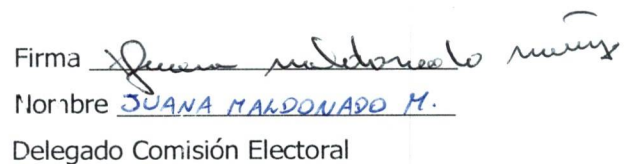 Firma Juana Maldonado Muñoz
Nombre JUANA MALDONADO M.
Delegado Comisión Electoral